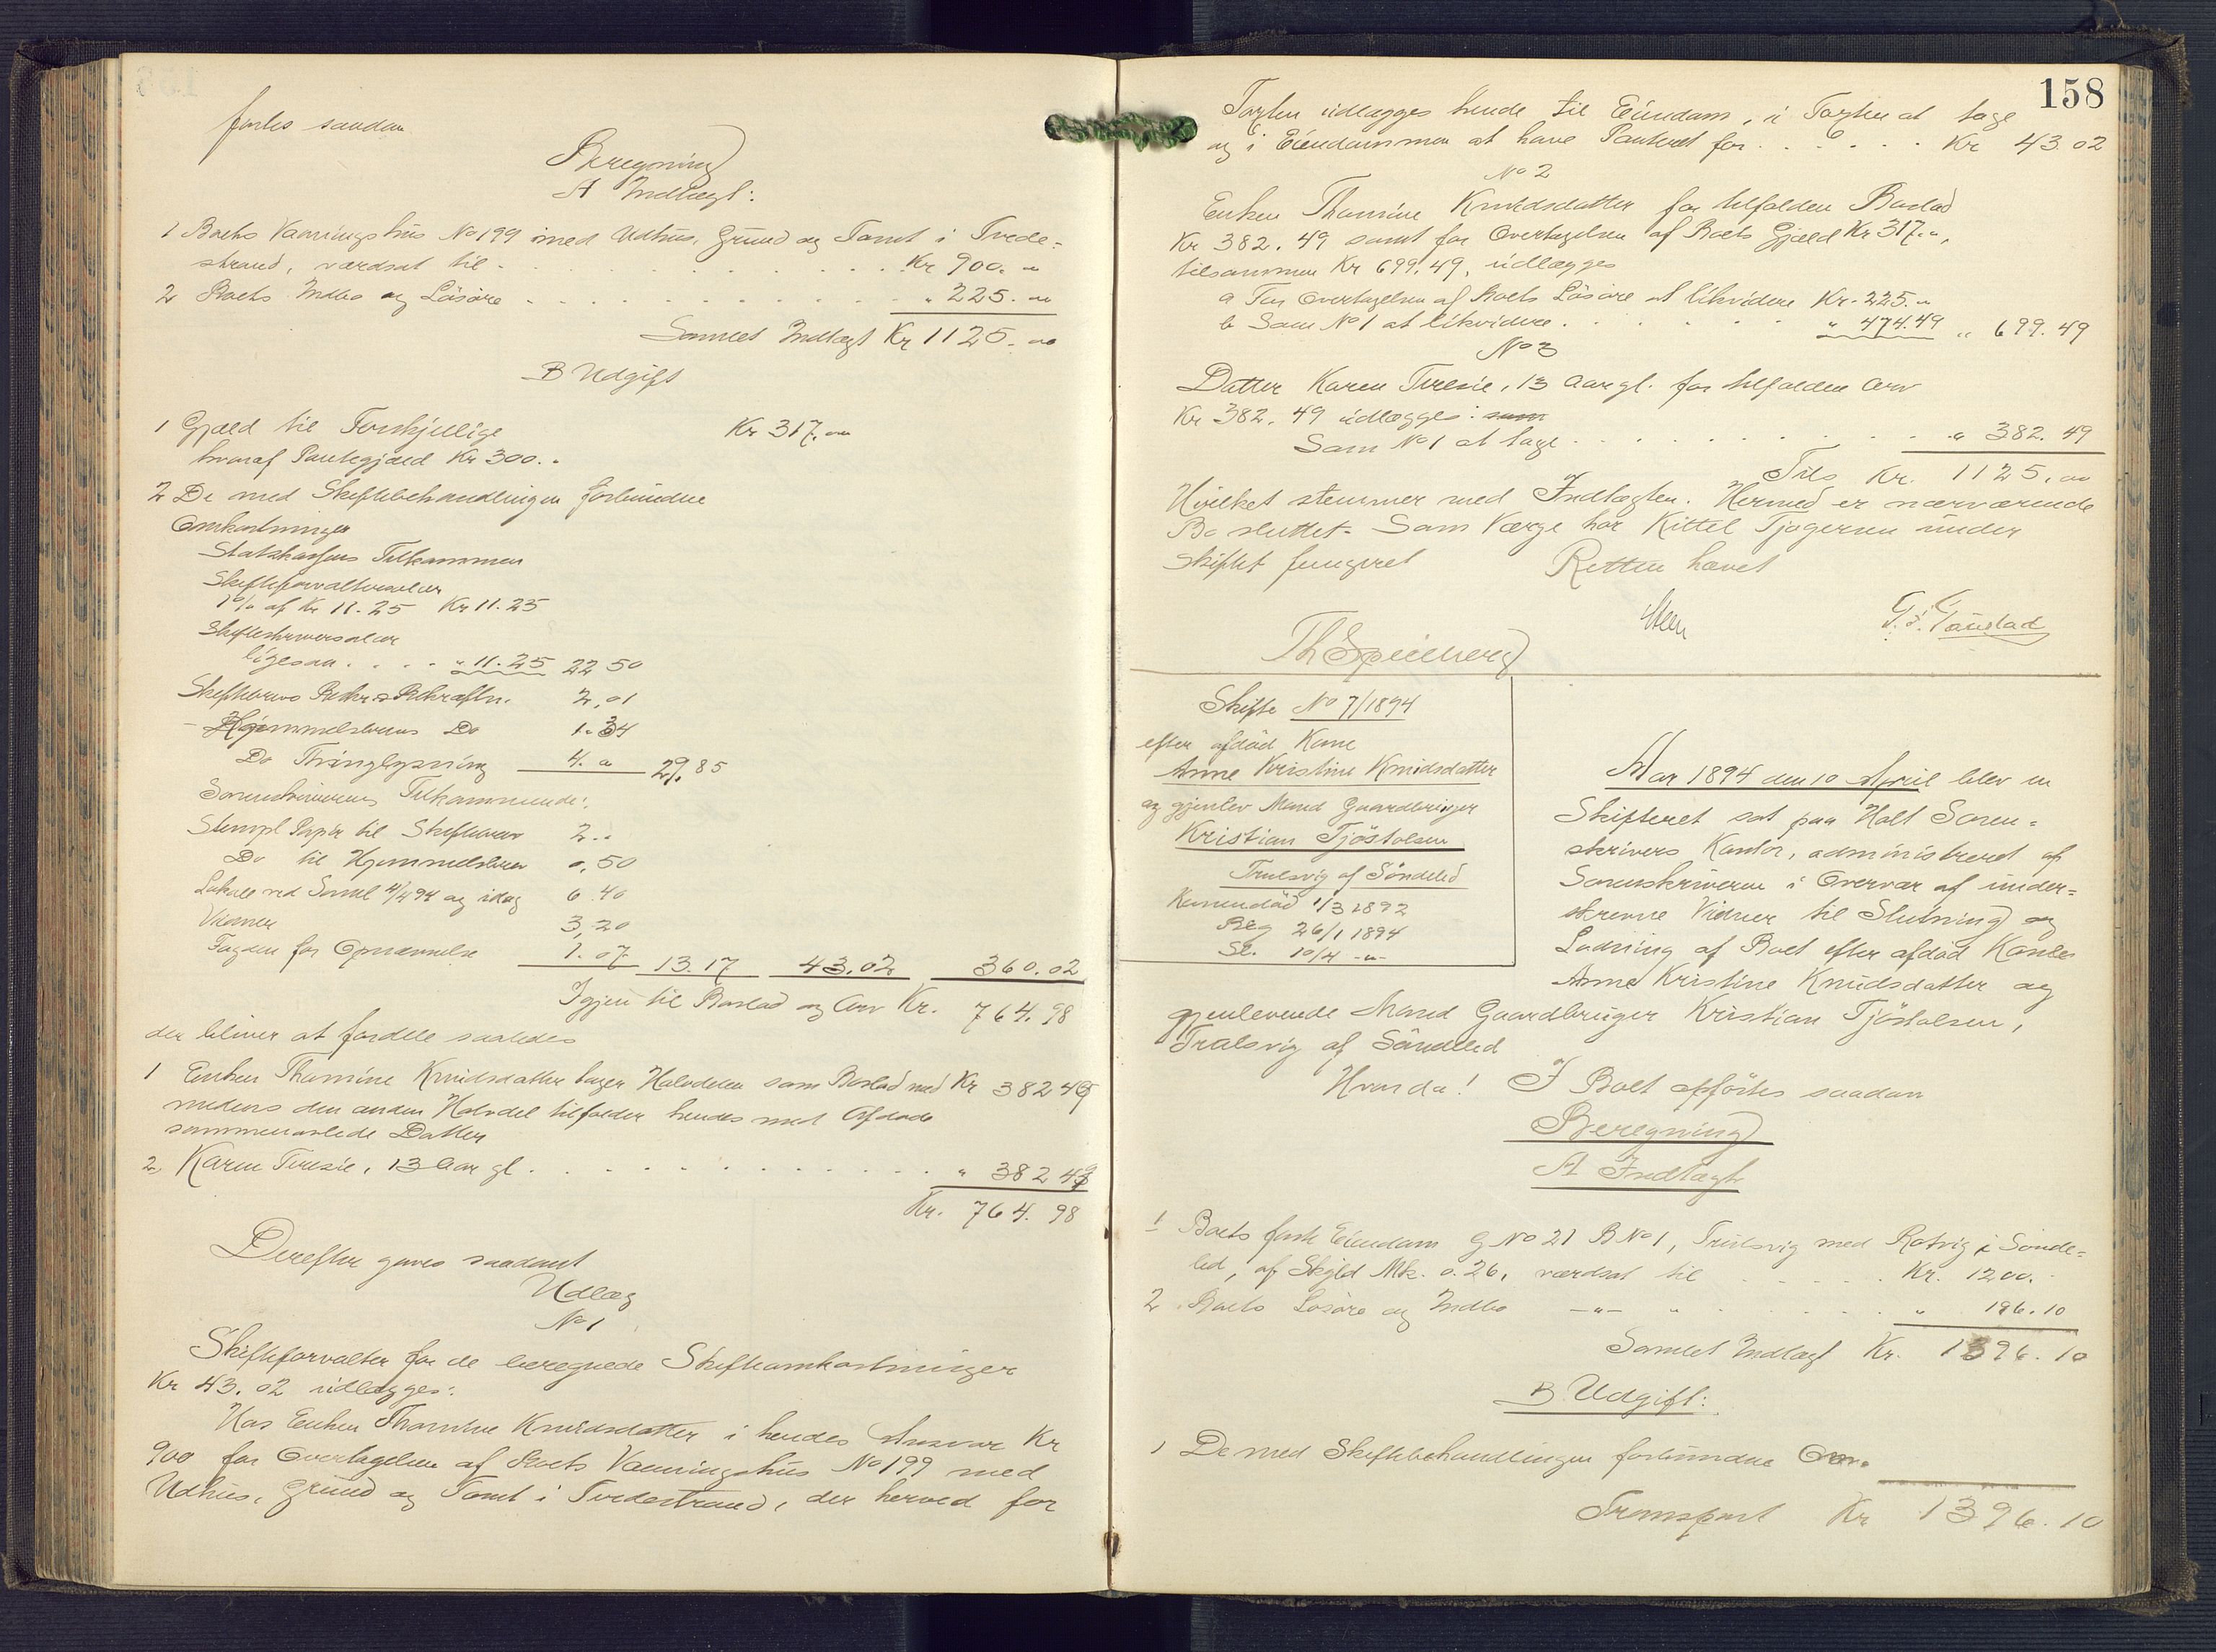 førtes saadan
Beregning
A Indtægt:
1 Boets Vaaningshus No 199 med Udhus, Grund og Tomt i Tvede=
strand, værdsat til . . . . . . Kr 900. "
2 Boets Indbo og Løsøre . . . . . . " 225. "
Samlet Indtægt Kr 1125. "
B Udgift
1 Gjæld til Forskjellige Kr 317. "
hvoraf Pantegjæld Kr 300. "
2 De med Skiftebehandlingen forbundne
Omkostninger
Statskassens Tilkommen
Skifteforvaltersalær
1% af Kr 11.25 Kr 11.25
Skifteskriversalær
ligesaa . . . . " 11.25 22 50
Skiftebrevs Beskr. & Bekræftn. 2,01
- Hjemmelsbrevs Do 1.34
Do Thinglysning 4. " 29.85
Sorenskriverens Tilkommende:
Stempl Papir til Skiftebrev 2. "
Do til Hjemmelsbrev 0,50
Lokale ved Saml 4/4 94 og idag 6.40
Vidner 3,20
Fogden for Opnævnelse 1.07 13.17 43.02 360.02
Igjen til Boslod og Arv Kr. 764.98
der bliver at fordele saaledes
1 Enken Thomine Knudsdatter tager Halvdelen som Boslod med Kr 382 49
medens den anden Halvdel tilfalder hendes med Afdøde
sammenavlede Datter
2 Karen Teresie, 13 Aar gl. . . . . . " 382 49
Kr. 764.98
Derefter gaves saadant
Udlæg
No 1
Skifteforvalter for de beregnede Skifteomkostninger
Kr 43.02 udlægges:
Hos Enken Thomine Knudsdatter i hendes Ansvar Kr
900 for Overtagelsen af Boets Vaaningshus No 199 med
Udhus, Grund og Tomt i Tvedestrand, der herved for
158
Taxten udlægges hende til Eiendom, i Taxten at tage
og i Eiendommen at have Panteret for . . . . . . Kr 43.02
No 2
Enken Thomine Knudsdatter for tilfalden Boslod
Kr 382.49 samt for Overtagelsen af Boets Gjæld Kr 317. ",
tilsammen Kr 699.49, udlægges
a For Overtagelsen af Boets Løsøre at likvidere Kr. 225. "
b Som No 1 at likvidere . . . . . " 474.49 " 699.49
No 3
Datter Karen Teresie, 13 Aar gl. for tilfalden Arv
Kr 382.49 udlægges: som
Som No 1 at tage . . . . . . " 382.49
Tils Kr. 1125. "
Hvilket stemmer med Indtægten. Hermed er nærværende
Bo sluttet. Som Værge har Kittel Tjøgersen under
Skiftet fungeret Retten hævet
Steen
G. S. Gaustad
Th Speilberg
Skifte No 7/1894
efter afdød Kone
Anne Kristine Knudsdatter
og gjenlev Mand Gaardbruger
Kristian Tjøstolsen
Trulsvig af Søndeled
Konen død 1/3 1892
Beg 26/1 1894
Sl. 10/4 -"-
Aar 1894 den 10 April blev en
Skifteret sat paa Holt Soren=
skrivers Kontor, administreret af
Sorenskriveren i Overvær af under=
skrevne Vidner til Slutning og
Lodning af Boet efter afdød Kones
Anne Kristine Knudsdatter og
gjenlevende Mand Gaardbruger Kristian Tjøstolsen,
Trulsvig af Søndeled
Hvorda! I Boet opførtes saadan
Beregning
A Indtægt
1 Boets faste Eiendom G No 21 B No 1, Trulsvig med Rotvig i Sønde=
led, af Skyld Mk. 0.26, værdsat til . . . . . Kr. 1200. -
2 Boets Løsøre og Indbo -"- " . . . . " 196.10
Samlet Indtægt Kr. 1396.10
B Udgift:
1 De med Skiftebehandlingen forbundne Om.
Transport Kr 1396.10